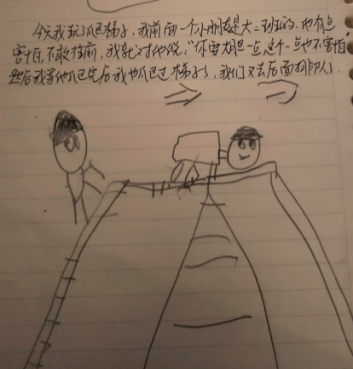 今天我玩爬梯子,我前面一个小朋友是大一班的,他有点
害怕,不敢往前,我就对他说,“你要大胆一点,这个一点也不害怕”
然后我等他爬完后我也爬过梯子了,我们又去后面排队了